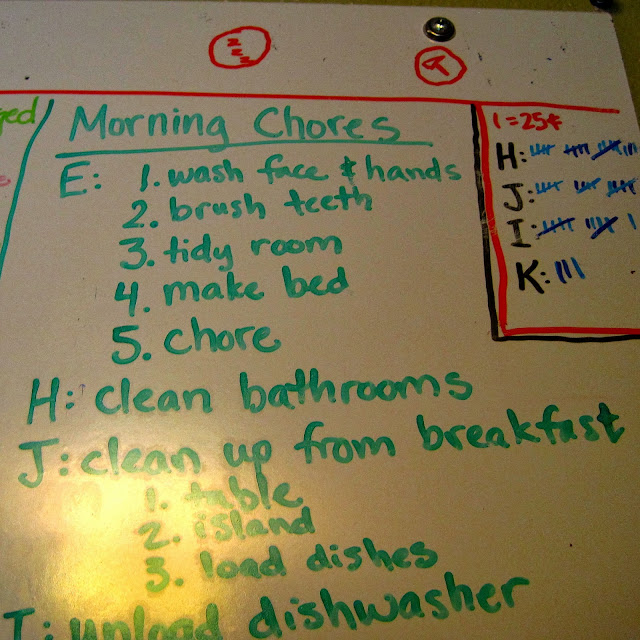 Morning Chores
E: 1. wash face & hands
2. brush teeth
3. tidy room
4. make bed
5. chore
H: clean bathrooms
J: clean up from breakfast
1. table
2. island
3. load dishes
I: unload dishwasher
1 = 25¢
H:
J:
I:
K: III